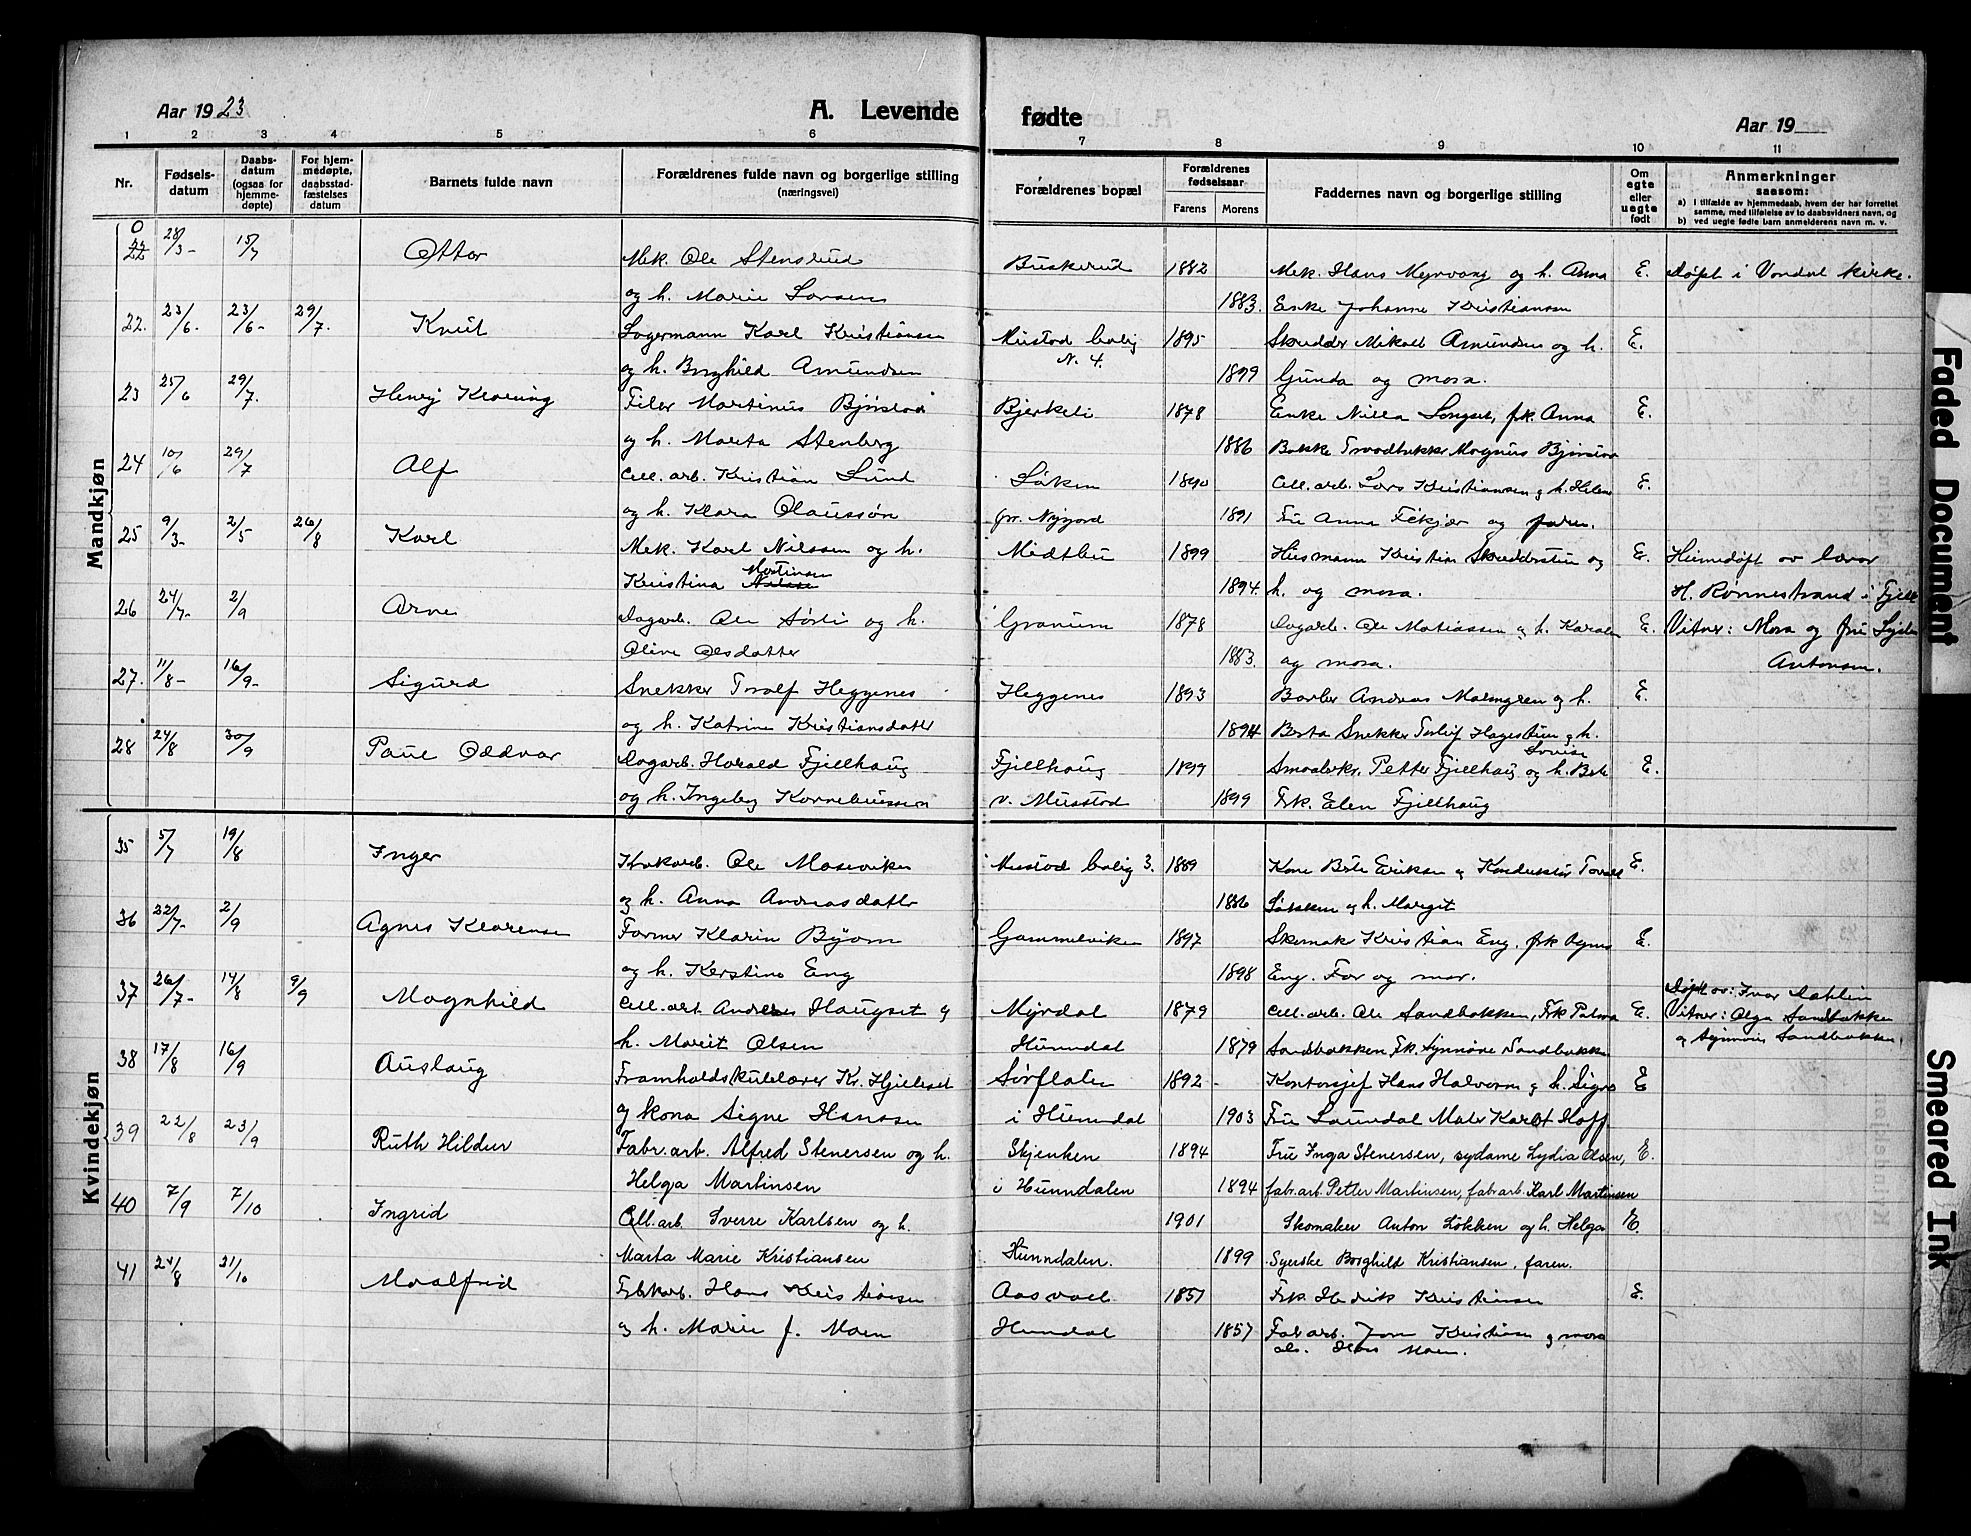 Aar 1923
A. Levende fødte
Aar 19
1 2 3 4 5 6 7 8 9 10 11
Nr.
Fødsels-
datum
Daabs-
datum
(ogsaa for
hjemme-
døpte)
For hjem-
medøpte,
daabsstad-
fæstelses
datum
Barnets fulde navn
Forældrenes fulde navn og borgerlige stilling
(næringsvei)
Forældrenes bopæl
Forældrenes
fødselsaar
Farens Morens
Faddernes navn og borgerlige stilling
Om
egte
eller
uegte
født
Anmerkninger
saasom:
a) I tilfælde av hjemmedaab, hvem der har forrettet
samme, med tilføielse av to daabsvidners navn, og
b) ved uegte fødte barn anmelderens navn m. v.
Mandkjøn
0
22 28/3- 15/7 Ottar Mek. Ole Stensrud Buskerud 1882 Mek. Hans Myrvang og h. Anna E. Døpt i Vardal kirke.
og h. Marie Larsen 1883. Enke Johanne Kristiansen
22. 23/6- 23/6- 29/7. Knut Lagermann Karl Kristiansen Mustad bolig 1895 Skredder Mikael Amundsen og h. E.
N. 4.
og h. Borghild Amundsen 1899 Gunda og mora.
23 25/6 29/7. Henry Klaring Filer Martinus Bjørstad Bjerkeli 1878 Enke Nilla Longset, frk. Anna E.
og h. Marta Stenberg 1886 Bakke Traadtrekker Magnus Bjørstad
24 10/6 29/7 Alf Cell. arb. Kristian Lund Løken 1890 Cell. arb. Lars Kristiansen og h. Helene E.
og h. Klara Olaussøn 1891 Fru Anna Fekjær og faren.
25 9/3- 2/5 26/8 Karl Mek. Karl Nilssen og h. Midtbu 1899 Husmann Kristian Skredderstuen og E. Heimedøpt av lærar
Martinsen
Kristina 1894. h. og mora. H. Rønnestrand i Fjell
26 24/7- 2/9 Arne Dagarb. Ole Sørli og h. Granum 1878 Dagarb. Ole Matiassen og h. Karolen E. Vitner: Mora og fru
Oline Olsdatter 1883. og mora. Antonsen.
27. 11/8- 16/9- Sigurd Snekker Toralf Heggenes Heggenes 1893 Barber Andreas Malmgren og h. E.
og h. Katrine Kristiansdatter 1894 Berta Snekker Torleif Hagestuen og h.
Lovise
28 24/8 30/9 Paul Oddvar Dagarb. Harald Fjellhaug Fjellhaug 1899 Smaabrkr. Petter Fjellhaug og h. Berte E.
og h. Ingeborg Korneliussen v. Mustad 1899 Frk. Elen Fjellhaug
Kvindekjøn
35 5/7 19/8 Inger Ole Moseviken Mustad bolig 3. 1889 Kone Berte Eriksen og Konduktør E.
og h. Anna Andreasdatter 1886 Løkken og h. Margit
36 22/7- 2/9 Agnes Klarense Former Klarin Byom Gammelviken 1897 Skomak Kristian Eng. frk Agnes E.
og h. Kerstine Eng 1898 Eng. Far og mor.
37 26/7- 14/8 9/9 Magnhild Cell. arb. Andreas Haugset og Myrdal 1879 Cell. arb. Ole Sandbakken, Frk Palma E. Døpt av: Ivar Dahlin
Vitner: Olga Sandbakken
h. Marit Olsen Hunndal 1879 Sandbakken Frk. Synnøve Sandbakken og Synnøve Sandbakken.
38 17/8 16/9 Auslaug Framhaldskulelærer Kr. Hjelleset Sørflaten 1892- Kontorsjef Hans Halvorsen og h. Signe E
og kona Signe Hansen i Hunndal 1903 Fru Laundal Maler Karl Hoff
39 22/8 23/9 Ruth Hildur Fabr. arb. Alfred Stenersen og h. Skjenken 1894 Fru Inga Stenersen, sydame Lydia Olsen, E.
Helga Martinsen i Hunndalen 1894 fabr. arb. Petter Martinsen, fabr. arb. Karl Martinsen
40 7/9 7/10 Ingrid Cell. arb. Sverre Karlsen og h. 1901 Skomaker Anton Løkken og h. Helga E.
Marta Marie Kristiansen Hunndalen. 1899 Syerske Borghild Kristiansen, faren.
41 24/8 21/10 Moalfrid Hans Kristiansen Aasvael 1857 Frk. Kristiansen E.
og h. Marie f. Moen Hundal 1857 Fabr arb. Kristiansen og mora
Moen.
Faded Document
Smeared Ink